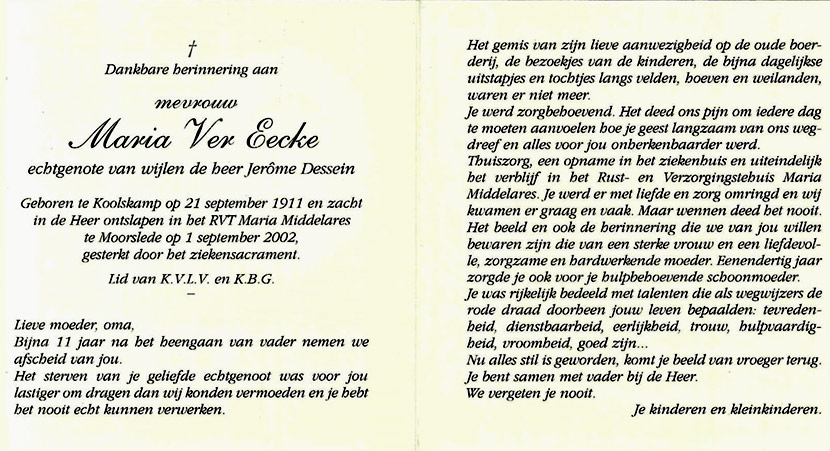 †
Dankbare herinnering aan
mevrouw
Maria Ver Eecke
echtgenote van wijlen de heer Jerôme Dessein
Geboren te Koolskamp op 21 september 1911 en zacht
in de Heer ontslapen in het RVT Maria Middelares
te Moorslede op 1 september 2002,
gesterkt door het ziekensacrament.
Lid van K.V.L.V. en K.B.G.
–
Lieve moeder, oma,
Bijna 11 jaar na het heengaan van vader nemen we
afscheid van jou.
Het sterven van je geliefde echtgenoot was voor jou
lastiger om dragen dan wij konden vermoeden en je hebt
het nooit echt kunnen verwerken.
Het gemis van zijn lieve aanwezigheid op de oude boer-
derij, de bezoekjes van de kinderen, de bijna dagelijkse
uitstapjes en tochtjes langs velden, hoeven en weilanden,
waren er niet meer.
Je werd zorgbehoevend. Het deed ons pijn om iedere dag
te moeten aanvoelen hoe je geest langzaam van ons weg-
dreef en alles voor jou onherkenbaarder werd.
Thuiszorg, een opname in het ziekenhuis en uiteindelijk
het verblijf in het Rust- en Verzorgingstehuis Maria
Middelares. Je werd er met liefde en zorg omringd en wij
kwamen er graag en vaak. Maar wennen deed het nooit.
Het beeld en ook de herinnering die we van jou willen
bewaren zijn die van een sterke vrouw en een liefdevol-
le, zorgzame en hardwerkende moeder. Eenendertig jaar
zorgde je ook voor je hulpbehoevende schoonmoeder.
Je was rijkelijk bedeeld met talenten die als wegwijzers de
rode draad doorheen jouw leven bepaalden: tevreden-
heid, dienstbaarheid, eerlijkheid, trouw, hulpvaardig-
heid, vroomheid, goed zijn...
Nu alles stil is geworden, komt je beeld van vroeger terug.
Je bent samen met vader bij de Heer.
We vergeten je nooit.
Je kinderen en kleinkinderen.